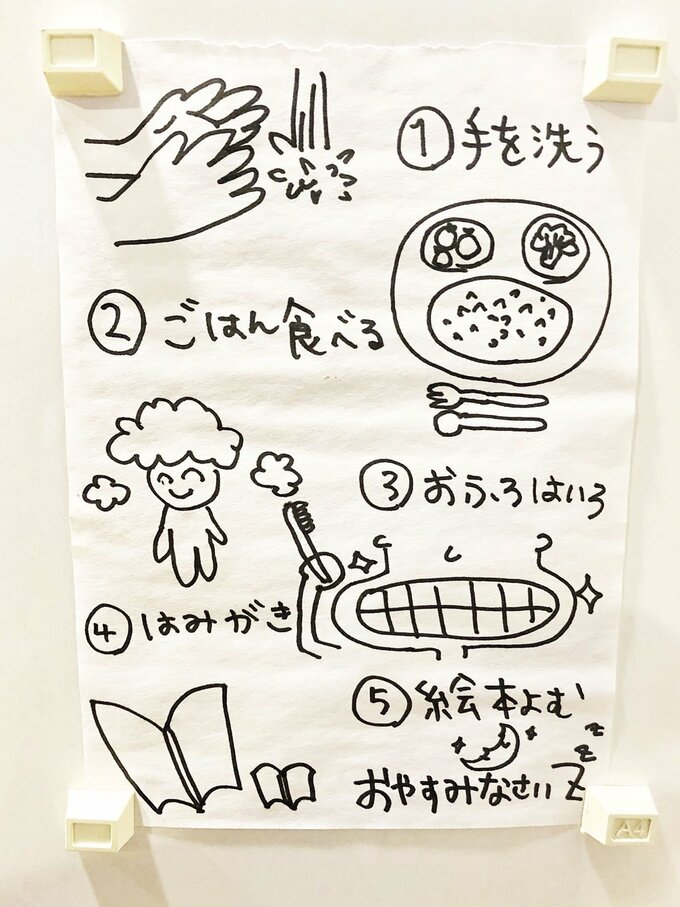 ① 手を洗う
② ごはん食べる
③ おふろはいろ
④ はみがき
⑤ 絵本よむ
z
z
おやすみなさいZ
A4